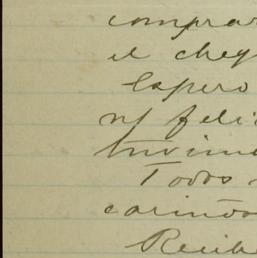 comprar
el cheq
Espero
ny feli
tuvime
Todos
cariños
Recib